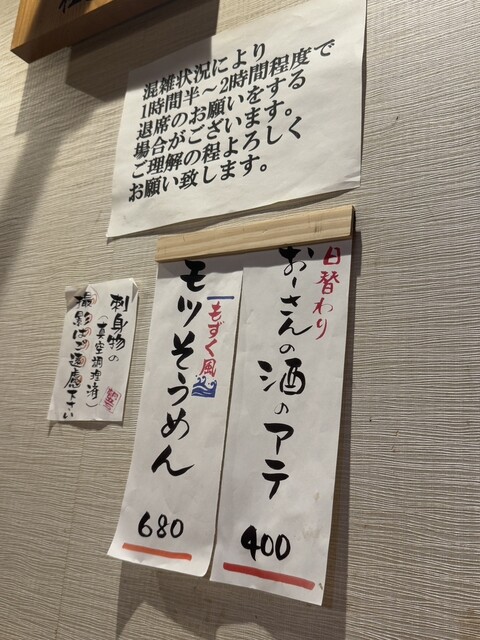 混雑状況により
1時間半～2時間程度で
退席のお願いをする
場合がございます。
ご理解の程よろしく
お願い致します。
日替わり
おーさんの酒のアテ
400
もずく風
モツそうめん
680
刺身物の
(真空調理済)
撮影はご遠慮下さい